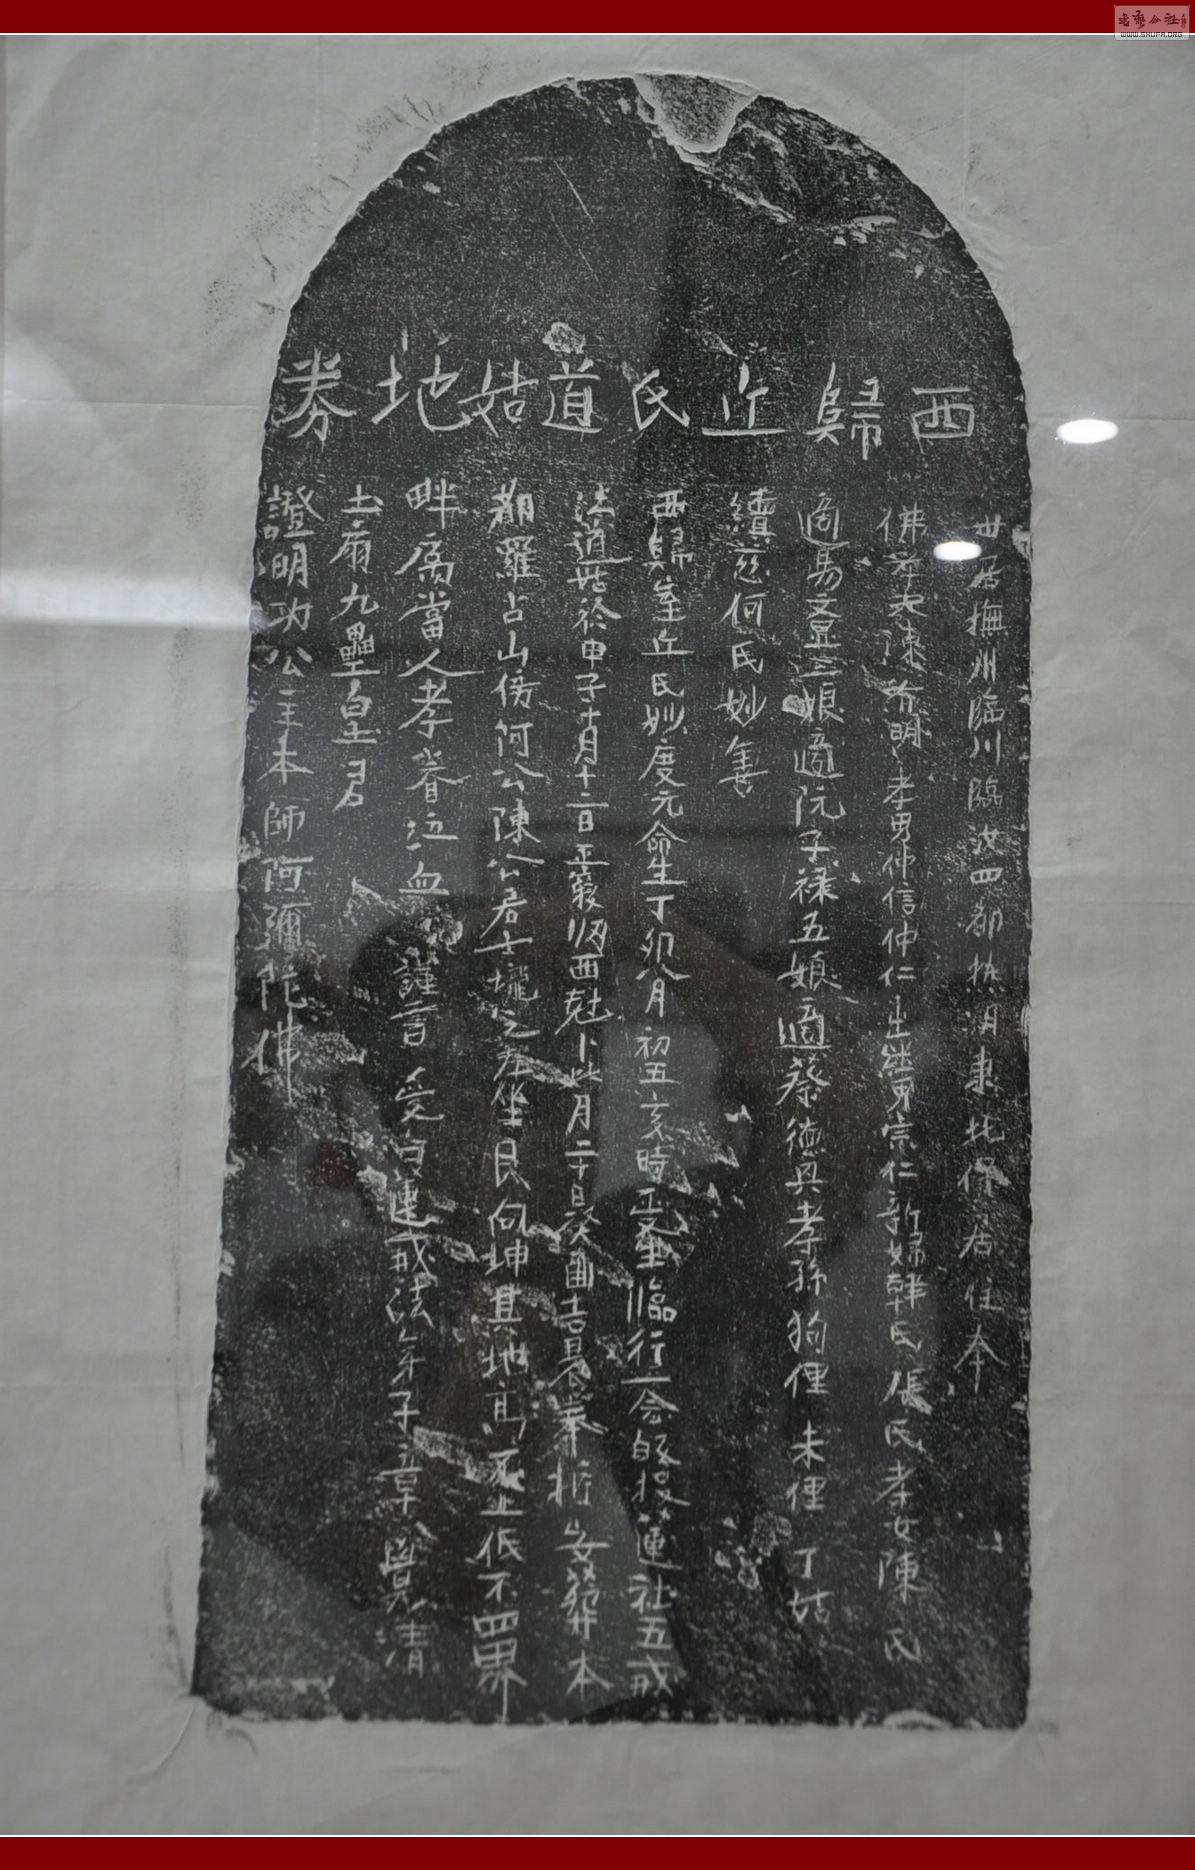 西歸丘氏道姑地券
世居撫州臨川臨汝四都 湖東北保居住奉
佛孝夫陳 明孝男仲信仲仁出繼男宗仁新婦韓氏張氏孝女陳氏
適易 三娘適阮子祿五娘適蔡德興孝孫狗俚未俚丁姑
續 何氏妙善
西歸 丘氏妙度元命生丁 月初五亥時 臨行一念 投蓮社五戒
法道姑於申子十月十二日 西 卜此月二十日癸酉吉晨舉柩安葬本
都羅占山傍何公陳公居士壠之左坐艮向坤其地高不 低不 四界
畔屬當人孝眷泣血 謹言 受 戒法弟子章 清
土府九壘皇君
證明功 公主本師阿彌陀佛
WWW.SHUFA.ORG